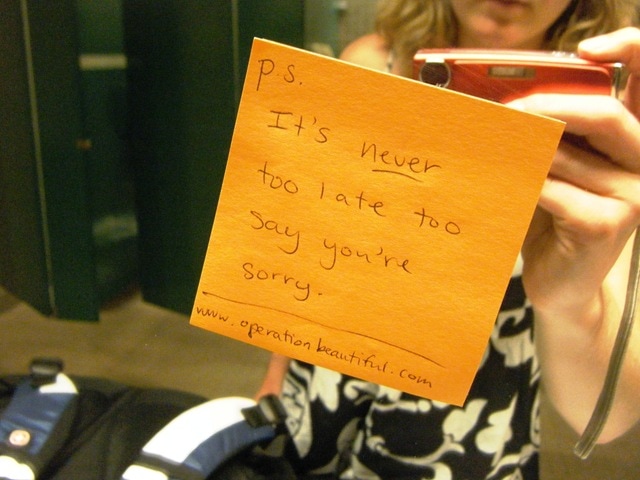 p.s.
It's never
too late too
say you're
sorry.
www.operationbeautiful.com